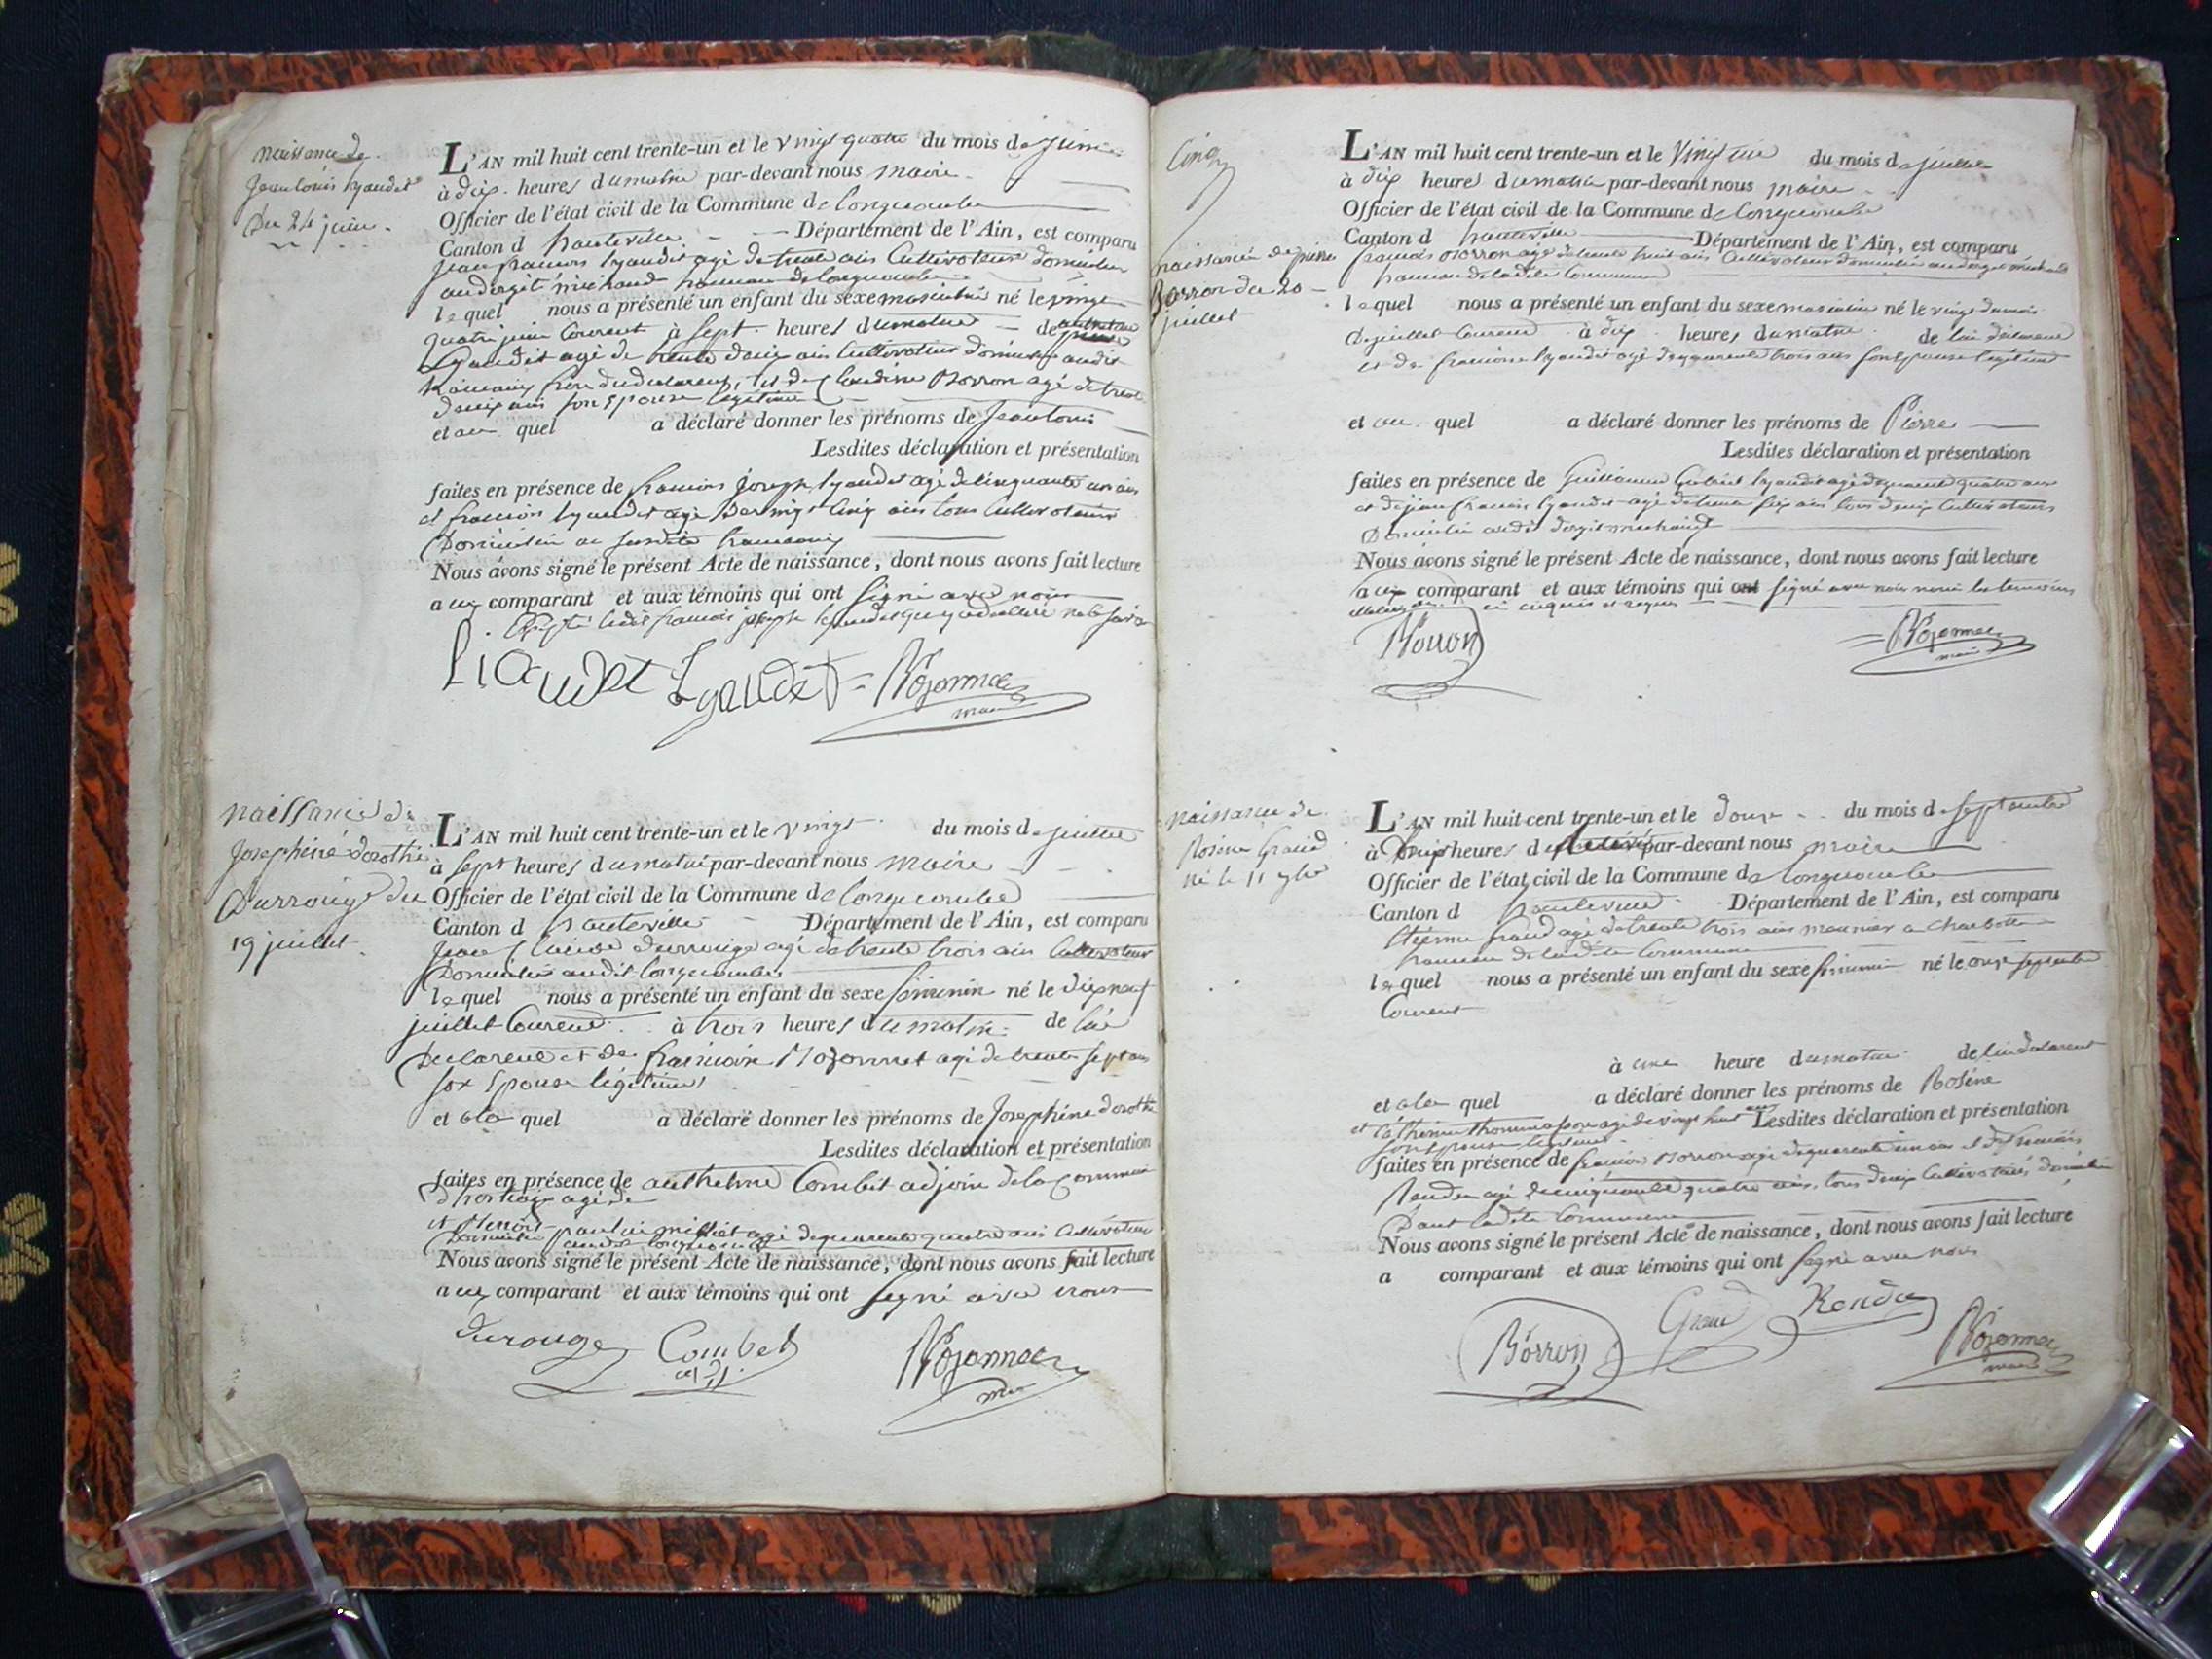 naissance de
Jean louis lyaudet
Du 24 juin
L'AN mil huit cent trente-un et le vingt quatre du mois de juin
à dix heures du matin par-devant nous maire
Officier de l'état civil de la Commune de longecombe
Canton d hauteville Département de l'Ain, est comparu
jean francois lyaudet agé de trente ans Cultivateur domicilié
au dergit michaud hameau de longecombe
lequel nous a présenté un enfant du sexe masculin né le vingt
quatre juin Courant à sept heures du matin de
lyaudet agé de trente deux ans Cultivateur domicilié audit
hameau frère du declarent, et de Claudine Borron agé de trente
deux ans son Epouse légitime
et au quel a déclaré donner les prénoms de Jean louis
Lesdites déclaration et présentation
faites en présence de francois joseph lyaudet agé de cinquante un ans
et francois lyaudet agé de vingt cinq ans tous Cultivateurs
Domicilié au susdit hameau
Nous avons signé le présent Acte de naissance, dont nous avons fait lecture
aux comparant et aux témoins qui ont signé avec nous
Excepté ledit francois joseph lyaudet qui a declaré ne le savoir
liaudet Lyaudet Bozonnet
maire
naissance de
Josephine dorothé
Durrouge du
19 juillet
L'AN mil huit cent trente-un et le vingt du mois de juillet
à sept heures du matin par-devant nous maire
Officier de l'état civil de la Commune de longecombe
Canton d hauteville Département de l'Ain, est comparu
Jean Claude durrouge agé de trente trois ans Cultivateur
Domicilié audit longecombe
lequel nous a présenté un enfant du sexe feminin né le dix neuf
juillet Courent à trois heures du matin de lui
Declarent et de francoise Bozonnet agé de trente sept ans
son Epouse légitime
et a la quel a déclaré donner les prénoms de Josephine dorothé
Lesdites déclaration et présentation
faites en présence de anthelme Combet adjoin de la Commune
agé de
et paul agé de quarente quatre ans Cultivateur
Domicilié audit longecombe
Nous avons signé le présent Acte de naissance, dont nous avons fait lecture
aux comparant et aux témoins qui ont segné avec nous
durouge Combet Bozonnet
adj. mre
Cinq
naissance de pierre
Borron du 20
juillet
L'AN mil huit cent trente-un et le vingt un du mois de juillet
à dix heures du matin par-devant nous maire
Officier de l'état civil de la Commune de longecombe
Canton d hauteville Département de l'Ain, est comparu
francois Borron agé de trente huit ans Cultivateur domicilié au dergit michaud
hameau de ladite Commune
lequel nous a présenté un enfant du sexe masculin né le vingt du mois
de juillet Courent à dix heures du matin de lui declarent
et de francoise lyaudet agé de quarente trois ans son Epouse légitime
et au quel a déclaré donner les prénoms de Pierre
Lesdites déclaration et présentation
faites en présence de Guillaume lyaudet agé de quarente quatre ans
et de jean francois lyaudet agé de trente six ans tous deux Cultivateurs
Domicilié audit dergit michaud
Nous avons signé le présent Acte de naissance, dont nous avons fait lecture
aux comparant et aux témoins qui ont signé avec nous les temoins
enquis et requis
Borron Bozonnet
maire
naissance de
Rosine Graud
né le 11 7bre
L'AN mil huit cent trente-un et le douze du mois de septembre
à heures d par-devant nous maire
Officier de l'état civil de la Commune de longecombe
Canton d hauteville Département de l'Ain, est comparu
agé de trente trois ans meunier a charbotte
hameau de ladite Commune
lequel nous a présenté un enfant du sexe feminin né le onze septembre
Courent
à une heure du matin de lui declarent
et a la quel a déclaré donner les prénoms de Rosine
et Catherine thommasson agé de vingt huit ans Lesdites déclaration et présentation
son Epouse légitime
faites en présence de francois Borron agé de quarente un ans et de francois
Rendu agé de cinquante quatre ans, tous deux Cultivateurs domicilié
Dans ladite Commune
Nous avons signé le présent Acte de naissance, dont nous avons fait lecture
a comparant et aux témoins qui ont segné avec nous
Borron Graud Rendu Bozonnet
maire